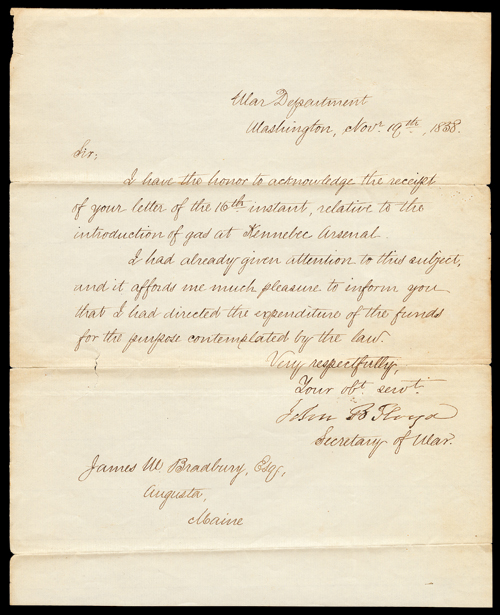 War Department
Washington, Novr. 19th, 1858.
Sir:
I have the honor to acknowledge the receipt
of your letter of the 16th instant, relative to the
introduction of gas at Kennebec Arsenal.
I had already given attention to this subject,
and it affords me much pleasure to inform you
that I had directed the expenditure of the funds
for the purpose contemplated by the law.
Very respectfully,
Your obt. servt.
John B Floyd
Secretary of War.
James W. Bradbury, Esq.,
Augusta,
Maine